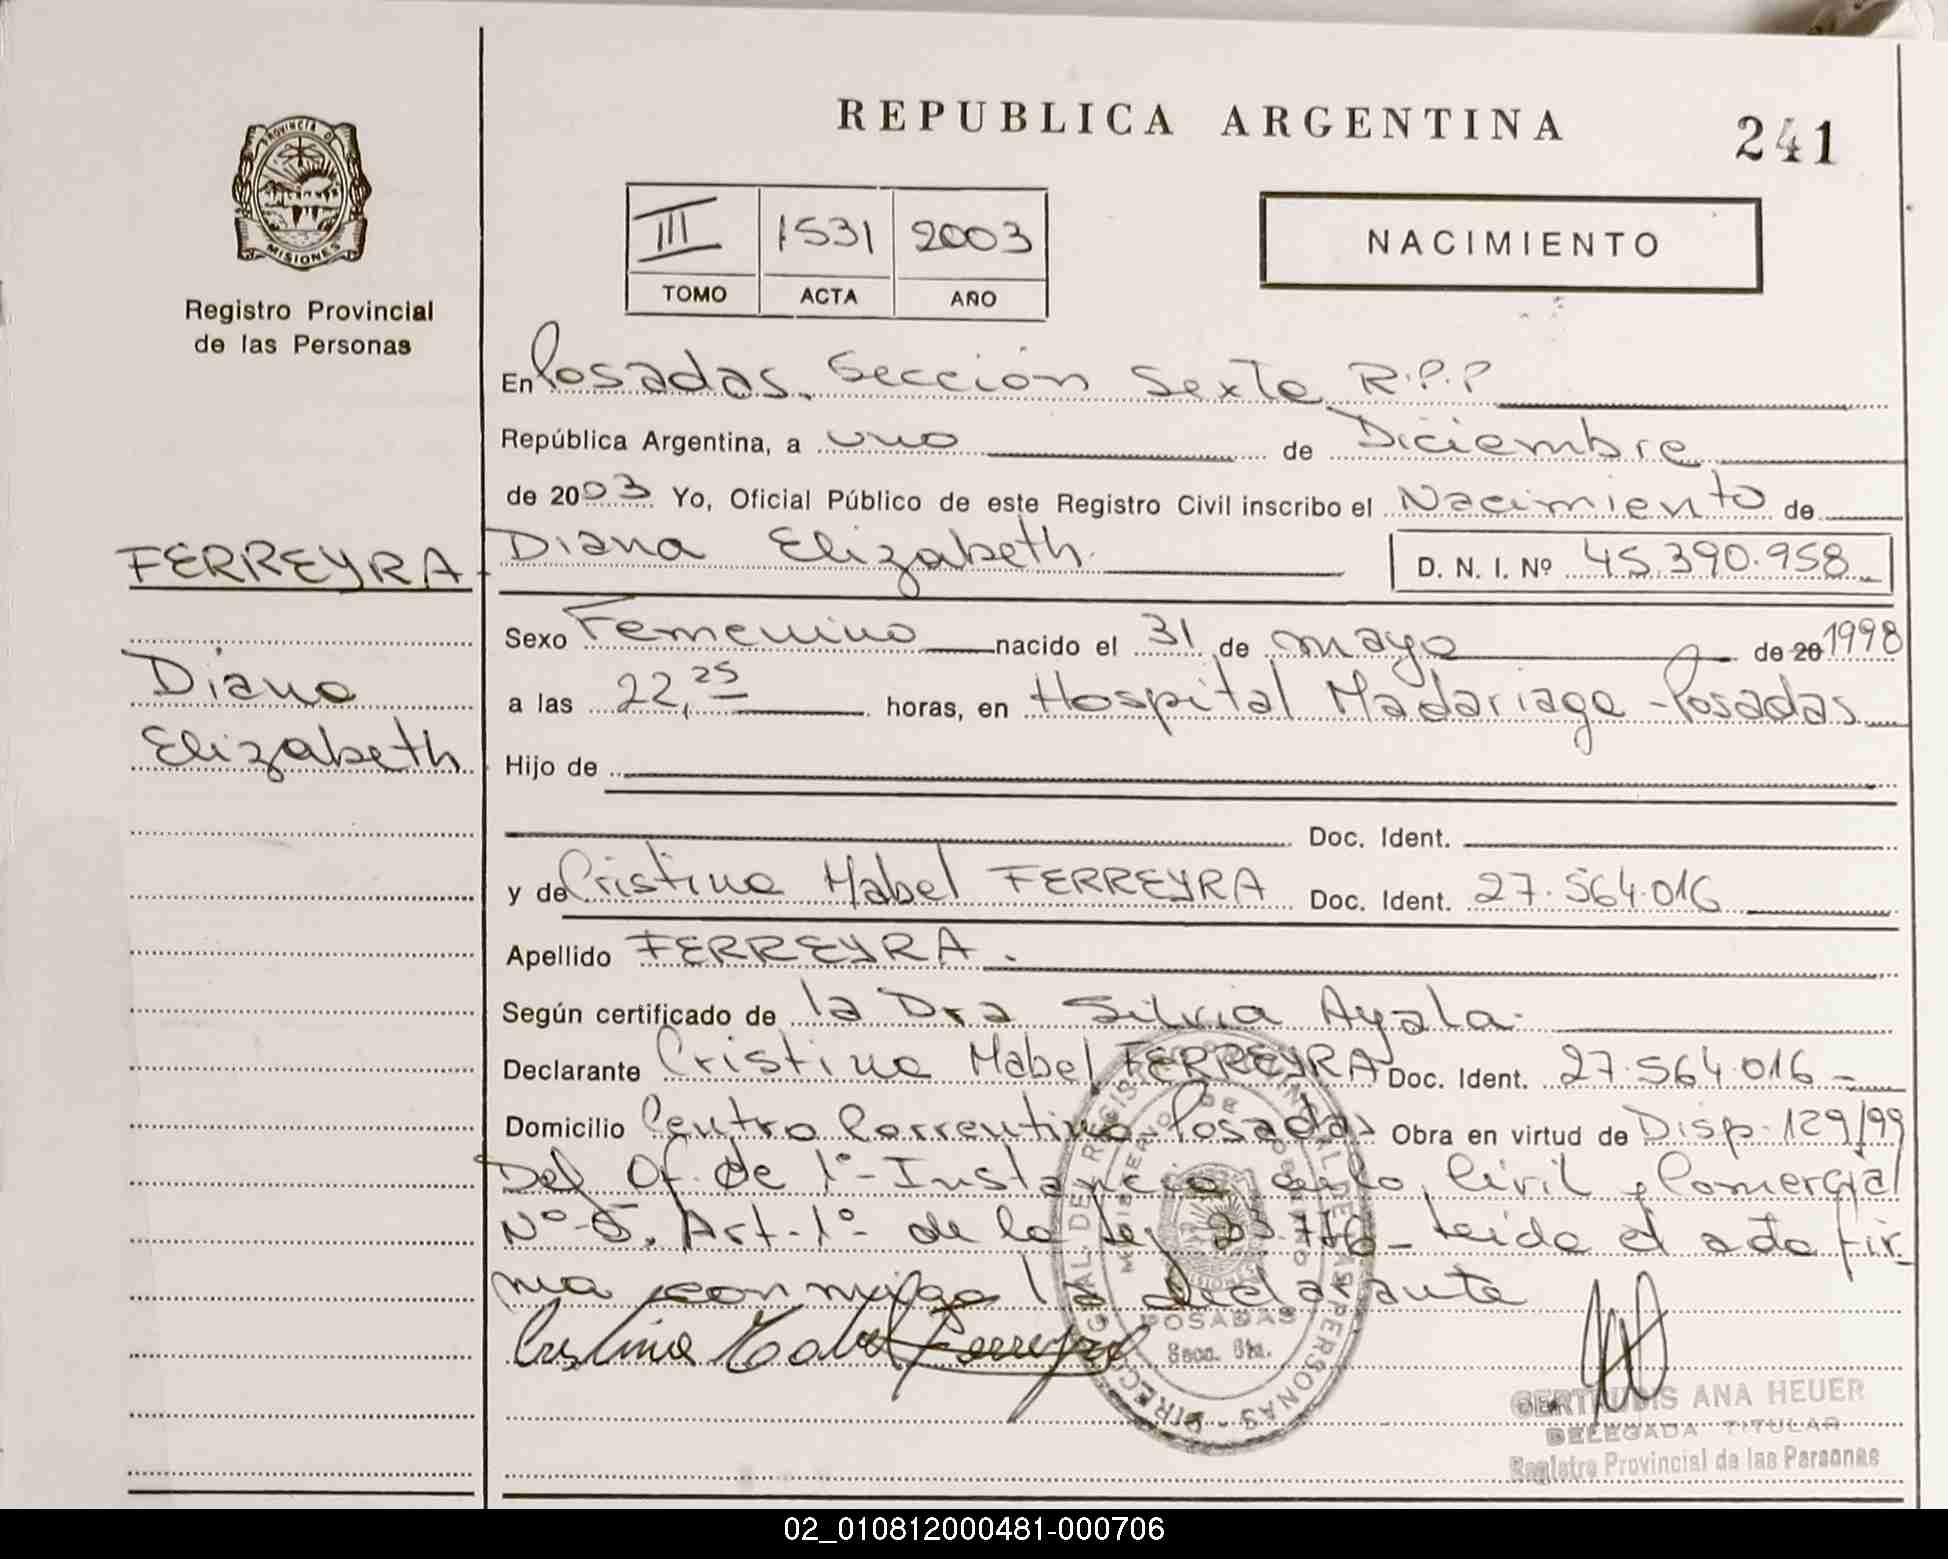 REPUBLICA ARGENTINA
241
PROVINCIA D
MISIONES
Registro Provincial
de las Personas
III 1531 2003
TOMO ACTA AÑO
NACIMIENTO
En Posadas. Sección Sexta R.P.P
República Argentina, a uno de Diciembre
de 2003 Yo, Oficial Público de este Registro Civil inscribo el Nacimiento de
FERREYRA
Diana
Elizabeth
Diana Elizabeth. D. N. I. Nº 45.390.958
Sexo Femenino nacido el 31 de mayo de 20 1998
a las 22,25 horas, en Hospital Madariaga - Posadas
Hijo de
Doc. Ident.
y de Cristina Mabel FERREYRA Doc. Ident. 27.564.016
Apellido FERREYRA.
Según certificado de la Dra Silvia Ayala.
Declarante Cristina Mabel FERREYRA Doc. Ident. 27.564.016 -
Domicilio Centro Correntino - Posadas Obra en virtud de Disp. 129/99
Del Of. de 1º - Instancia en lo Civil y Comercial
Nº 5. Art. 1º de la ley - Leida el acta fir
ma conmigo la declarante
Cristina Mabel Ferreyra
POSADAS
Secc. 6ta.
GERTRUDIS ANA HEUER
DELEGADA TITULAR
Registro Provincial de las Personas
02_010812000481-000706